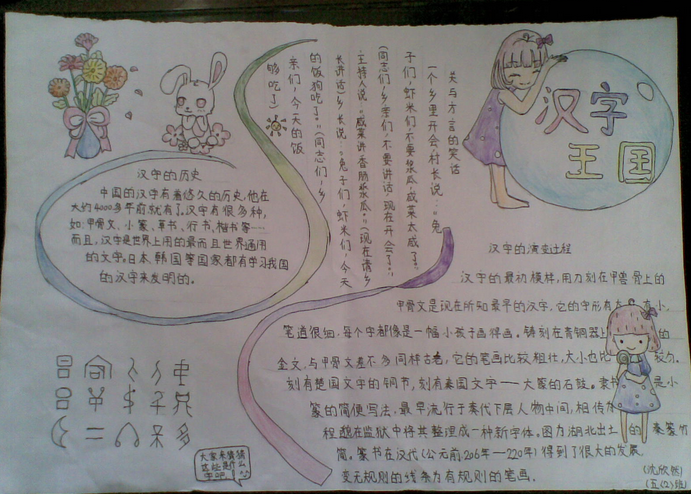 汉字
王国
关与方言的笑话
一个乡里开会,村长说:“兔
子们,虾米们,不要浆瓜,咸菜太咸了!”
(同志们,乡里们,不要讲话,现在开会了!)
主持人说:“咸菜讲香肠
(现在请乡
长讲话)乡长说:“兔子们,虾米们,今天
的饭狗吃了!”(同志们,乡
亲们,今天的饭
够吃了)
汉字的历史
中国的汉字有着悠久的历史,他在
大约4000多年前就有了,汉字有很多种,
如:甲骨文、小篆、草书、行书、楷书等…
而且,汉字是世界上用的最而且世界通用
的文字。日本、韩国等国家都有学习我国
的汉字来发明的。
汉字的演变过程
汉字的最初模样,用刀刻在甲兽骨上的
甲骨文是现在所知最早的汉字,它的字形有大有小,
笔道很细,每个字都像是一幅小孩子画得画。铸刻在青铜器上的
金文,与甲骨文差不多同样古老,它的笔画比较粗壮,大小也比较匀。
刻有楚国文字的铜节,刻有秦国文字——大篆的石鼓。隶书是小
篆的简便写法,最早流行于秦代下层人物中间,相传
程邈在监狱中将其整理成一种新字体。因为湖北出土的秦篆竹
简。篆书在汉代(公元前206年—220年)得到了很大的发展。
变无规则的线条为有规则的笔画。
大家来猜猜
这些是什么
字吧
沈欣然
(五(2)班)